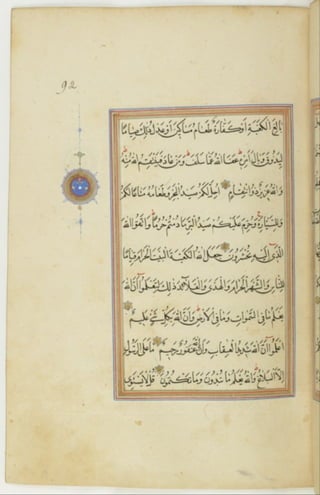 92
بالغ الكعبة أو كفارة طعام مساكين أو عدل ذلك صياما
ليذوق وبال أمره عفا الله عما سلف ومن عاد فينتقم الله منه
والله عزيز ذو انتقام أحل لكم صيد البحر وطعامه متاعا لكم
وللسيارة وحرم عليكم صيد البر ما دمتم حرما واتقوا الله
الذي إليه تحشرون جعل الله الكعبة البيت الحرام قياما
للناس والشهر الحرام والهدي والقلائد ذلك لتعلموا أن الله
يعلم ما في السموات وما في الأرض وأن الله بكل شيء عليم
اعلموا أن الله شديد العقاب وأن الله غفور رحيم ما على الرسول
إلا البلاغ والله يعلم ما تبدون وما تكتمون قل لا يستوي